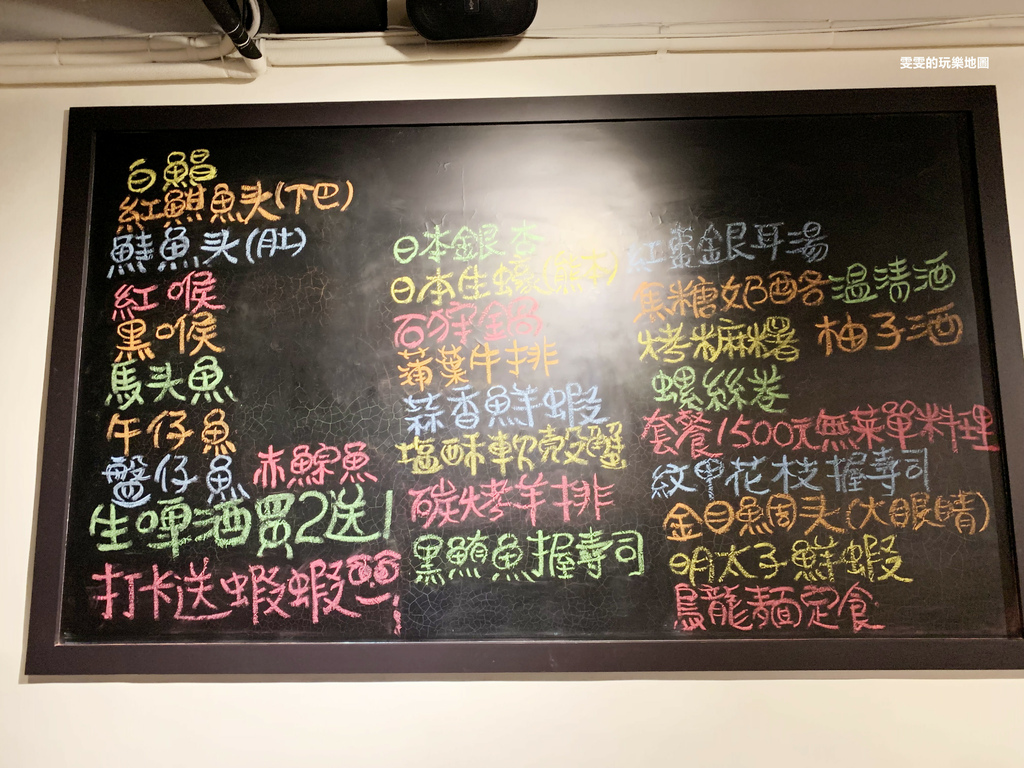 雯雯的玩樂地圖
白鯧
紅鯕魚头(下巴)
鮭魚头(肚)
紅喉
黑喉
馬头魚
午仔魚
盤仔魚
赤鯮魚
生啤酒買2送1
打卡送蝦蝦
日本銀杏
日本生蠔(無下)
石狩鍋
蒲葉牛排
蒜香鮮蝦
塩酥軟殼蟹
碳烤羊排
黑鮪魚握壽司
紅棗銀耳湯
焦糖奶酪
溫清酒
烤麻糬
柚子酒
螺絲卷
套餐1500元無菜單料理
紋甲花枝握壽司
金目魚周头(大眼睛)
明太子鮮蝦
烏龍麵定食